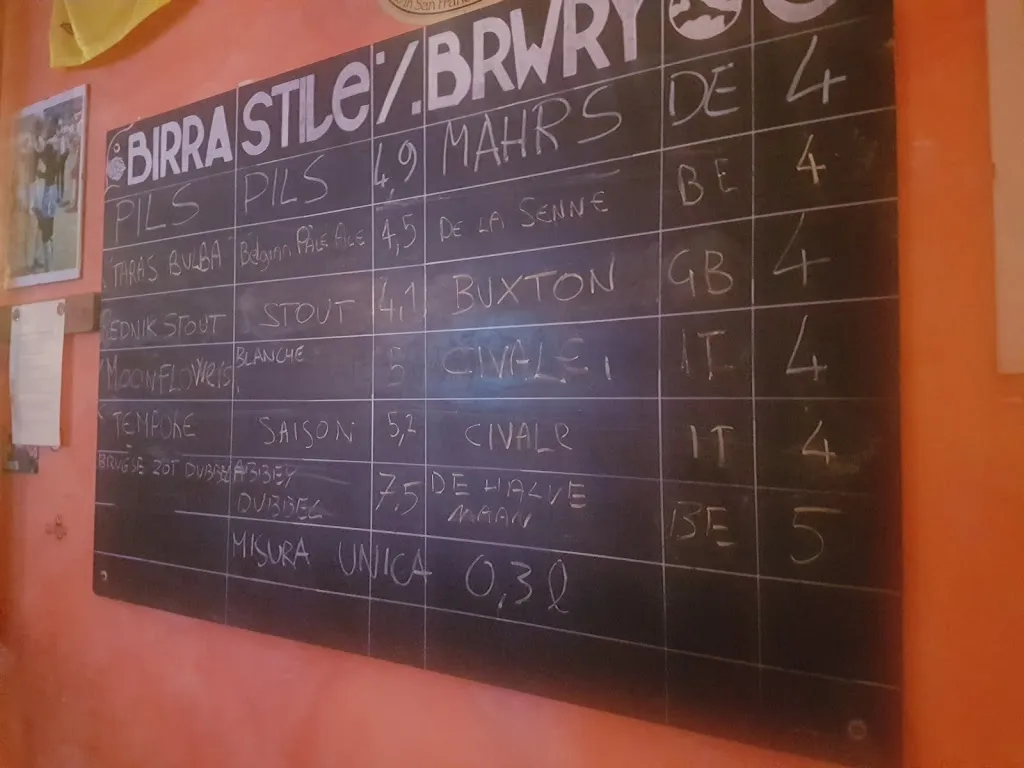 in San Fran
BIRRA STILE % BRWRY
PILS PILS 4,9 MAHRS DE 4
THRAS BULBA Belgian PALE ALE 4,5 DE LA SENNE BE 4
EDNIK STOUT STOUT 4,1 BUXTON GB 4
MOONFLOWERS BLANCHE 5 CIVALE IT 4
SAISON 5,2 CIVALE IT 4
ZOT ABBEY DUBBEL 7,5 DE HALVE MAAN BE 5
MISURA UNICA 0,3 l